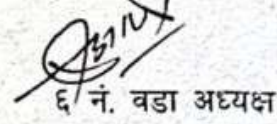 ६ नं. वडा अध्यक्ष